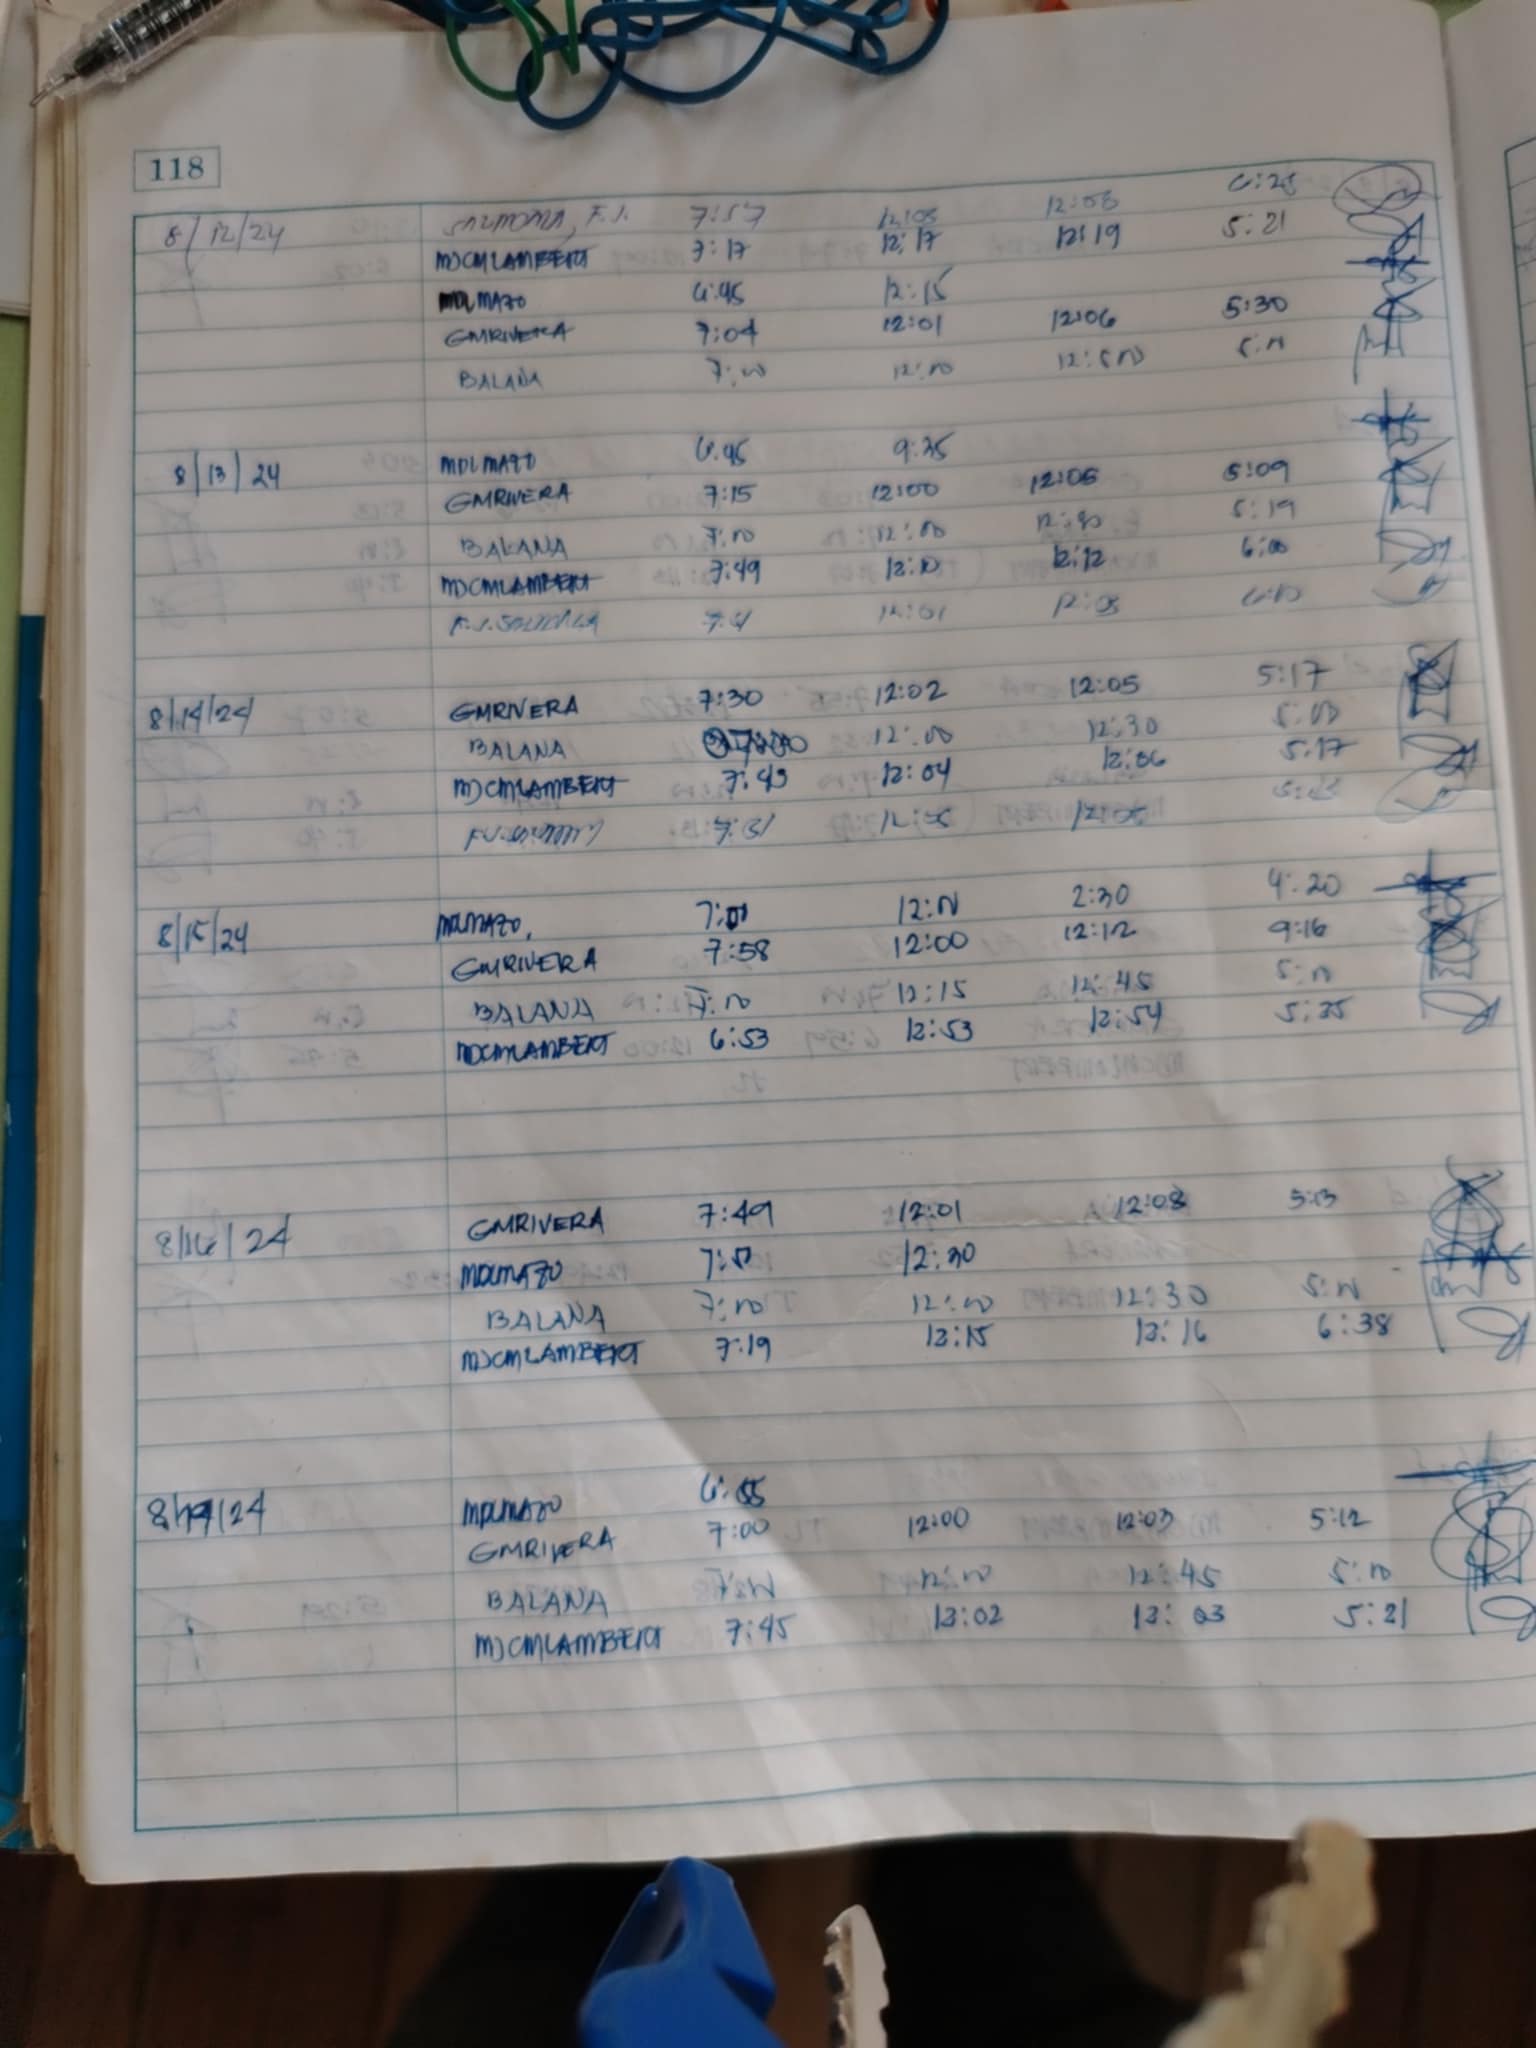 118
8/12/24 SALMORIA, F.J. 7:57 12:03 12:03
MJCMLAMBERT 7:17 12:17 12:19 5:21
MDLMAZO 6:45 12:15
GMRIVERA 7:04 12:01 12:06 5:30
BALANA 7:00 12:00 5:00
8/13/24 MDLMAZO 6:45 9:35
GMRIVERA 7:15 12:00 12:05 5:09
BALANA 7:00 12:00 12:30 5:19
MJCMLAMBERT 7:49 12:10 12:12 6:00
12:01 12:03
8/14/24 GMRIVERA 7:30 12:02 12:05 5:17
BALANA 12:00 12:30 5:00
MJCMLAMBERT 7:43 12:04 12:06 5:17
7:31 12:05
8/15/24 MDLMAZO, 7:00 12:00 2:30 4:20
GMRIVERA 7:58 12:00 12:12 9:16
BALANA 7:00 12:15 12:45 5:00
MJCMLAMBERT 6:53 12:53 12:54 5:35
8/16/24 GMRIVERA 7:49 12:01 12:08 5:13
MDLMAZO 7:00 12:30
BALANA 7:00 12:00 12:30 5:00
MJCMLAMBERT 7:19 13:15 13:16 6:38
8/19/24 MDLMAZO 6:55
GMRIVERA 7:00 12:00 12:03 5:12
BALANA 12:00 12:45 5:00
MJCMLAMBERT 7:45 13:02 13:03 5:21